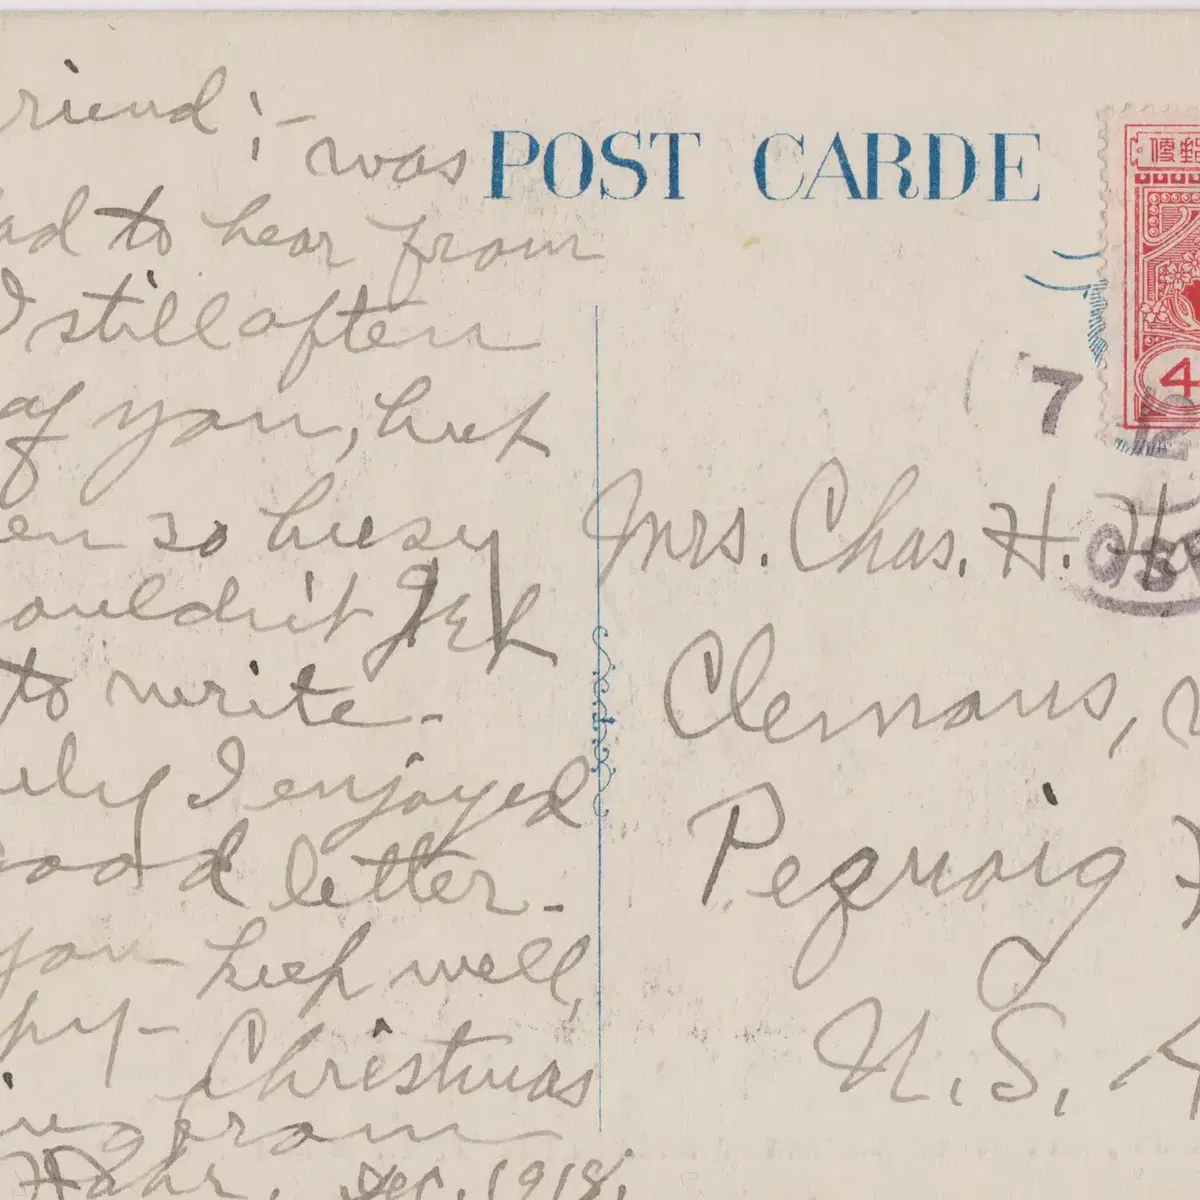 riend :- was
ad to hear from
I still often
of you, but
en so busy
ouldn't get
to write -
uly I enjoyed
ood letter -
you keep well,
py - Christmas
ing from
Hahr, Dec. 1918.
POST CARDE
4
7
Mrs. Chas. H.
Clemans,
Pequaig
U.S. A